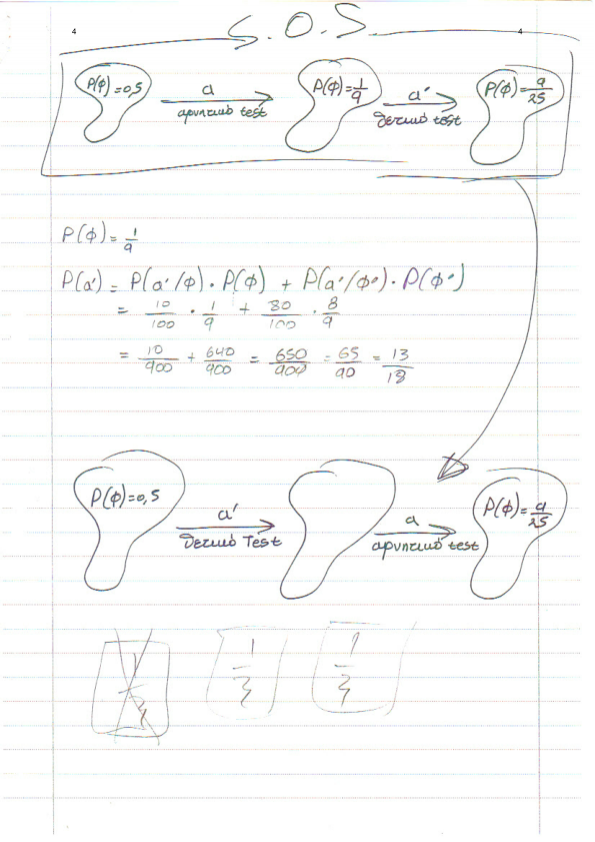 4 4
S.O.S.
P(φ)=0,5 a αρνητικό test P(φ)=1/9 a' θετικό test P(φ)=9/25
P(φ)=1/9
P(a') = P(a'/φ) · P(φ) + P(a'/φ') · P(φ')
= 10/100 · 1/9 + 80/100 · 8/9
= 10/900 + 640/900 = 650/900 = 65/90 = 13/18
P(φ)=0,5 a' θετικό Test a αρνητικό test P(φ)=9/25
1/3 1/3 1/3